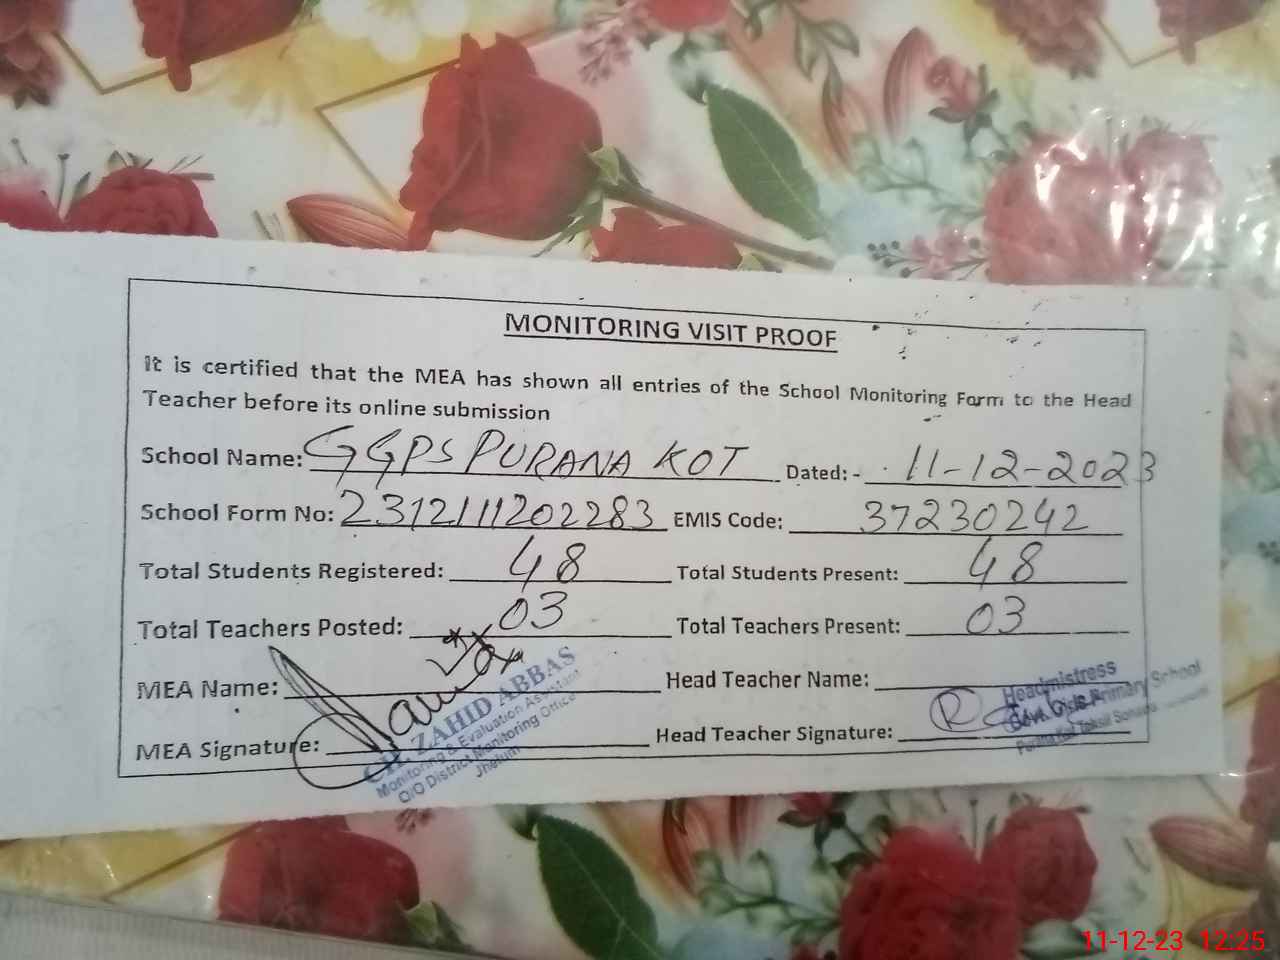 MONITORING VISIT PROOF
It is certified that the MEA has shown all entries of the School Monitoring Form to the Head
Teacher before its online submission
School Name: GGPS PURANA KOT Dated: - 11-12-2023
School Form No: 2312111202283 EMIS Code: 37230242
Total Students Registered: 48 Total Students Present: 48
Total Teachers Posted: 03 Total Teachers Present: 03
MEA Name: Head Teacher Name:
MEA Signature: Head Teacher Signature:
CH. ZAHID ABBAS
Monitoring & Evaluation Assistant
O/O District Monitoring Office
Jhelum
Headmistress
Govt. Girls Primary School
Purana Kot Tehsil
11-12-23 12:25